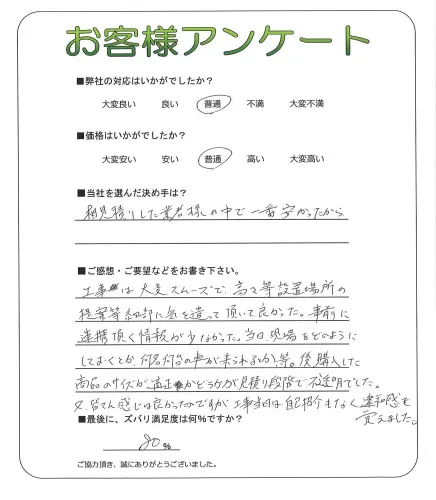 お客様アンケート
■弊社の対応はいかがでしたか？
大変良い 良い 普通 不満 大変不満
■価格はいかがでしたか？
大変安い 安い 普通 高い 大変高い
■当社を選んだ決め手は？
相見積りした業者様の中で一番安かったから
■ご感想・ご要望などをお書き下さい。
工事は大変スムーズで、高さ等設置場所の
提案等細部に気を遣って頂いて良かった。事前に
連携頂く情報が少なかった。当日、現場をどのように
しておくとか、何名何台の車が来られるとか、等。後購入した
商品のサイズが適正かどうかが見積り段階で不透明でした。
又、皆さん感じは良かったのですが工事当日は自己紹介もなく違和感を
覚えました。
■最後に、ズバリ満足度は何%ですか？
80%
ご協力頂き、誠にありがとうございました。